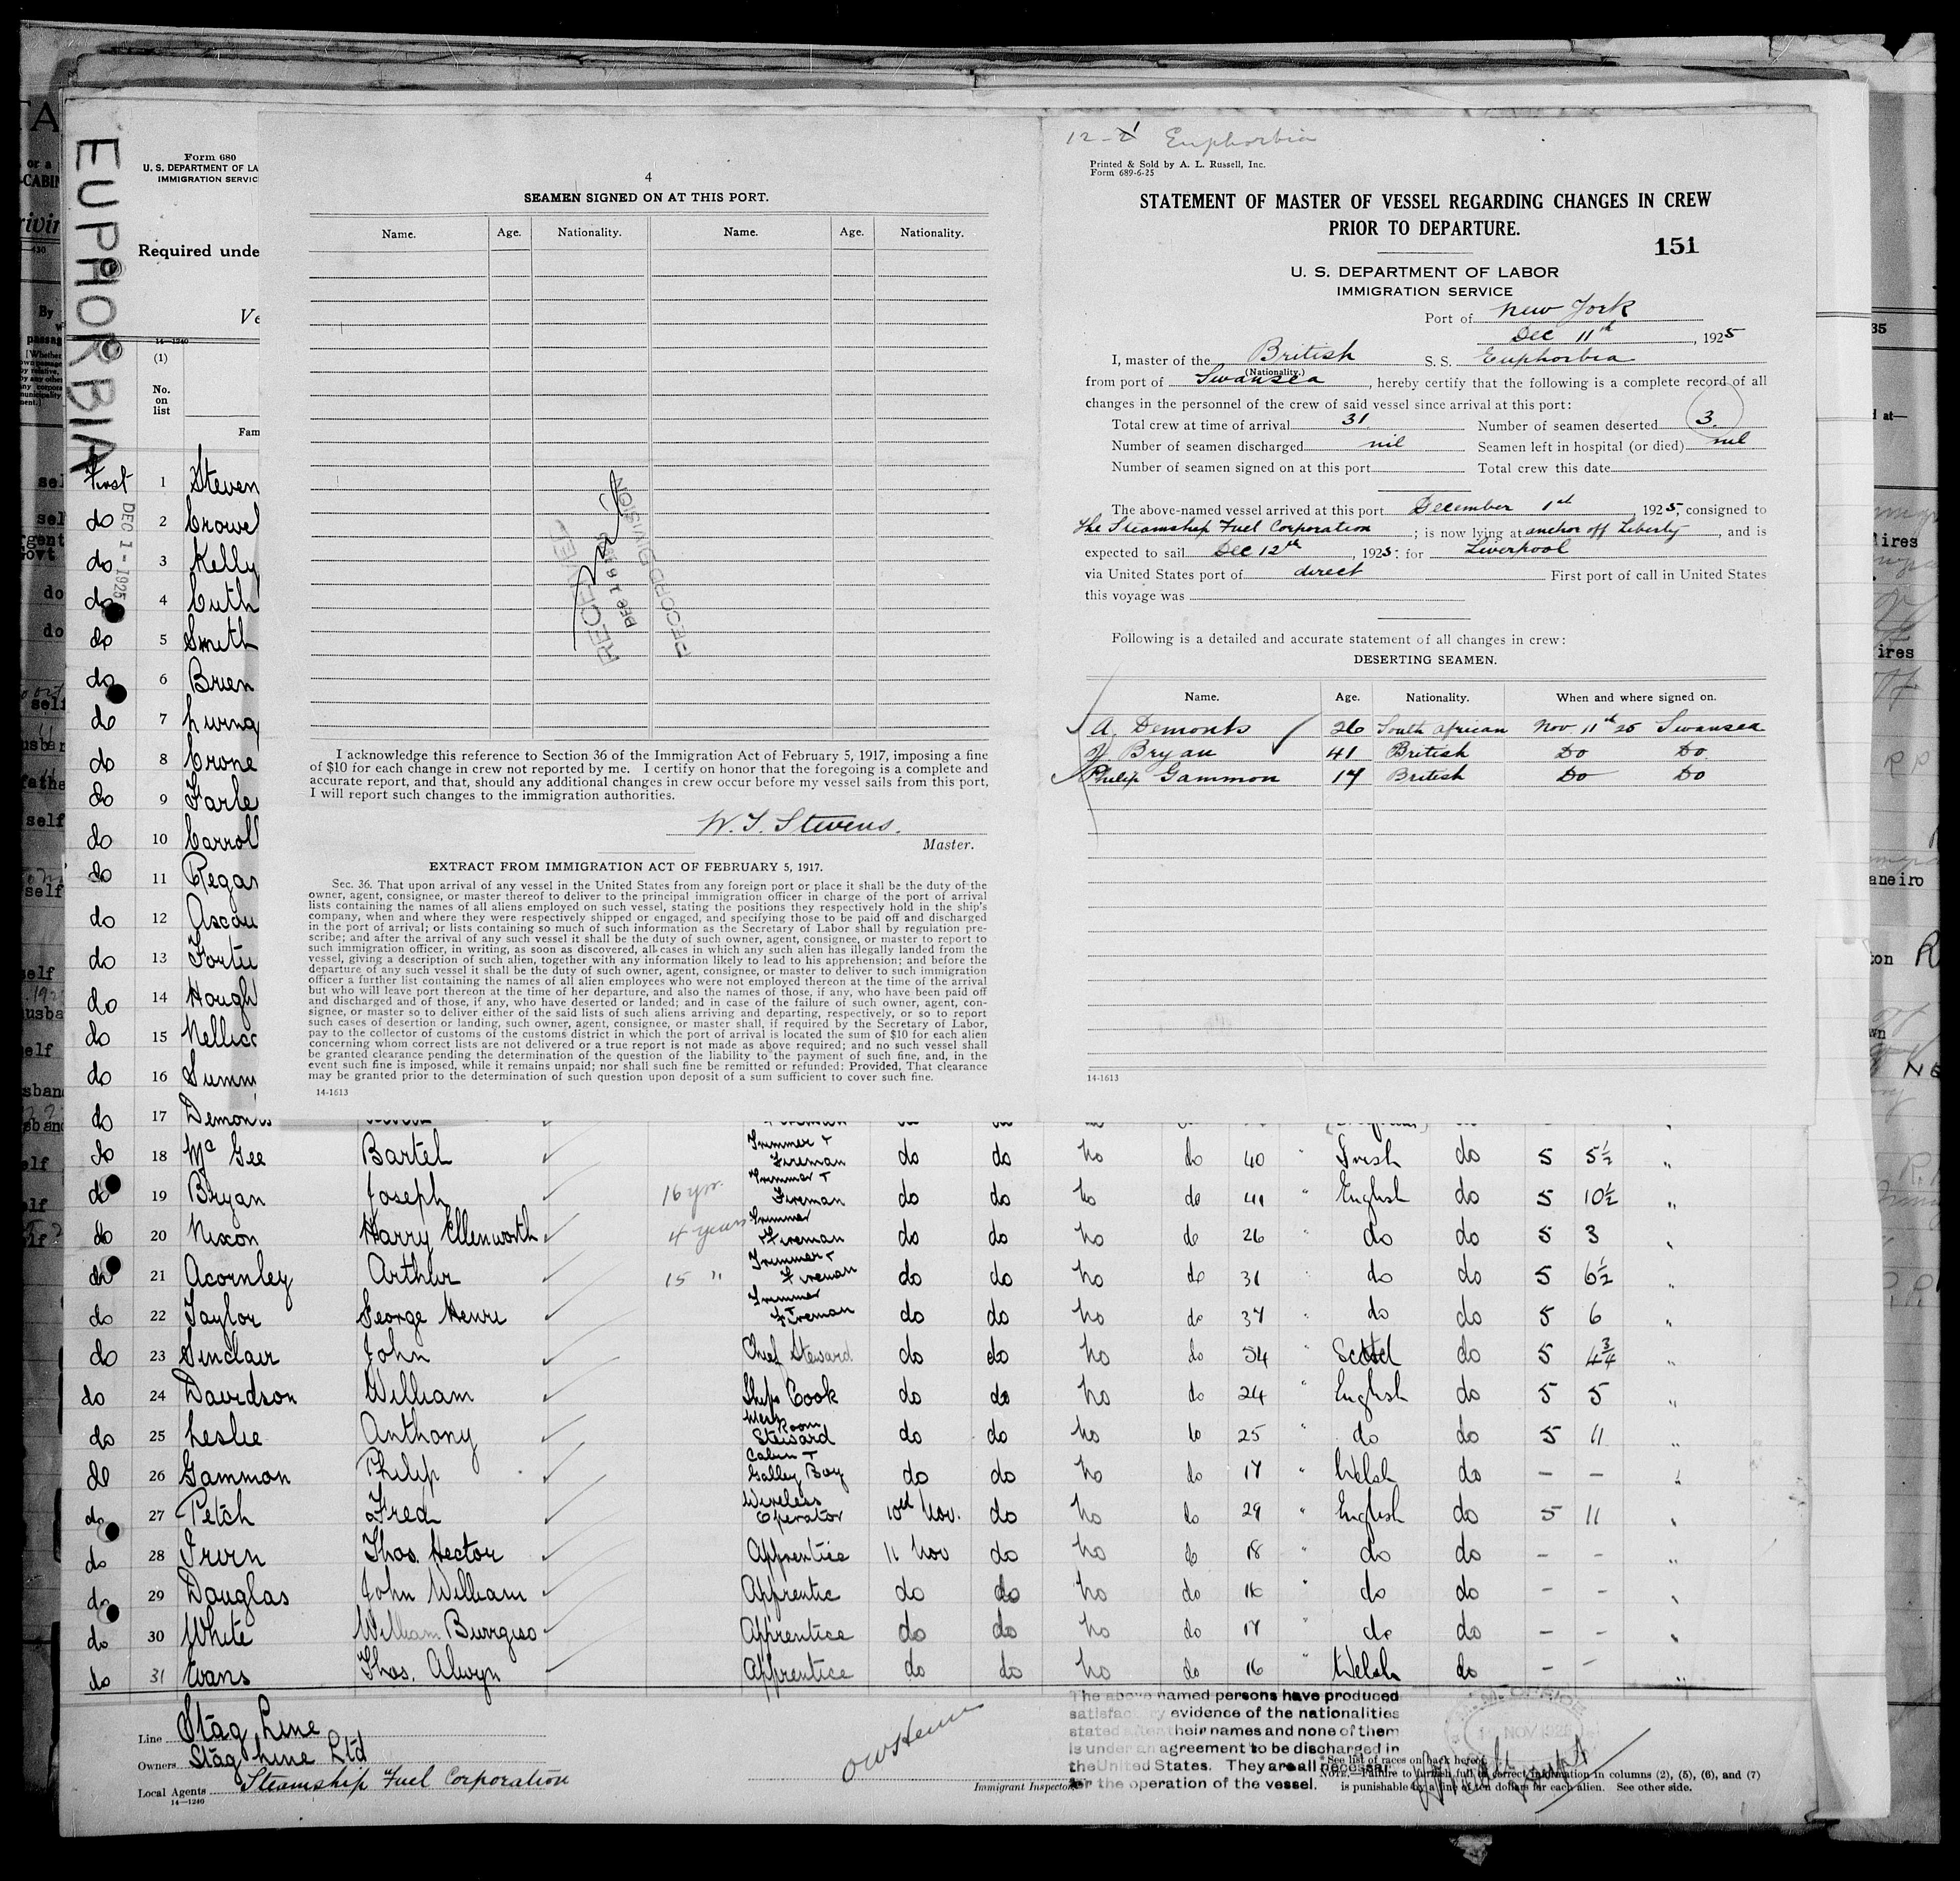 EUPHORBIA
Form 680
U. S. DEPARTMENT OF LA
IMMIGRATION SERVIC
Required unde
Ve
14—1240
(1)
No.
on
list
Fam
DEC 1 - 1925
First 1 Steven
do 2 Crowel
do 3 Kelly
do 4 Cuth
do 5 Smith
do 6 Brien
do 7
do 8 Crone
do 9 Farle
do 10 Carroll
do 11 Regan
do 12 Ascou
do 13 Fortu
do 14 Hough
do 15 Nellicc
do 16 Summ
4
SEAMEN SIGNED ON AT THIS PORT.
Name. Age. Nationality. Name. Age. Nationality.
RECEIVED
DEC 16
RECORD DIVISION
I acknowledge this reference to Section 36 of the Immigration Act of February 5, 1917, imposing a fine
of $10 for each change in crew not reported by me. I certify on honor that the foregoing is a complete and
accurate report, and that, should any additional changes in crew occur before my vessel sails from this port,
I will report such changes to the immigration authorities.
W. T. Stevens.
Master.
EXTRACT FROM IMMIGRATION ACT OF FEBRUARY 5, 1917.
Sec. 36. That upon arrival of any vessel in the United States from any foreign port or place it shall be the duty of the
owner, agent, consignee, or master thereof to deliver to the principal immigration officer in charge of the port of arrival
lists containing the names of all aliens employed on such vessel, stating the positions they respectively hold in the ship's
company, when and where they were respectively shipped or engaged, and specifying those to be paid off and discharged
in the port of arrival; or lists containing so much of such information as the Secretary of Labor shall by regulation pre-
scribe; and after the arrival of any such vessel it shall be the duty of such owner, agent, consignee, or master to report to
such immigration officer, in writing, as soon as discovered, all cases in which any such alien has illegally landed from the
vessel, giving a description of such alien, together with any information likely to lead to his apprehension; and before the
departure of any such vessel it shall be the duty of such owner, agent, consignee, or master to deliver to such immigration
officer a further list containing the names of all alien employees who were not employed thereon at the time of the arrival
but who will leave port thereon at the time of her departure, and also the names of those, if any, who have been paid off
and discharged and of those, if any, who have deserted or landed; and in case of the failure of such owner, agent, con-
signee, or master so to deliver either of the said lists of such aliens arriving and departing, respectively, or so to report
such cases of desertion or landing, such owner, agent, consignee, or master shall, if required by the Secretary of Labor,
pay to the collector of customs of the customs district in which the port of arrival is located the sum of $10 for each alien
concerning whom correct lists are not delivered or a true report is not made as above required; and no such vessel shall
be granted clearance pending the determination of the question of the liability to the payment of such fine, and, in the
event such fine is imposed, while it remains unpaid; nor shall such fine be remitted or refunded: Provided, That clearance
may be granted prior to the determination of such question upon deposit of a sum sufficient to cover such fine.
14-1613
12-1 Euphorbia
Printed & Sold by A. L. Russell, Inc.
Form 689-6-25
STATEMENT OF MASTER OF VESSEL REGARDING CHANGES IN CREW
PRIOR TO DEPARTURE.
151
U. S. DEPARTMENT OF LABOR
IMMIGRATION SERVICE
Port of New York
Dec 11th, 1925
I, master of the British S. S. Euphorbia
(Nationality.)
from port of Swansea, hereby certify that the following is a complete record of all
changes in the personnel of the crew of said vessel since arrival at this port:
Total crew at time of arrival 31 Number of seamen deserted 3.
Number of seamen discharged nil Seamen left in hospital (or died) nil
Number of seamen signed on at this port Total crew this date
The above-named vessel arrived at this port December 1st, 1925, consigned to
The Steamship Fuel Corporation; is now lying at anchor off Liberty, and is
expected to sail Dec 12th, 1925: for Liverpool
via United States port of direct First port of call in United States
this voyage was
Following is a detailed and accurate statement of all changes in crew:
DESERTING SEAMEN.
Name. Age. Nationality. When and where signed on.
A. Demonts 26 South African Nov. 11th 25 Swansea
J Bryan 41 British Do Do
Philip Gammon 17 British Do Do
14-1613
do 17 Demonts
do 18 Mc Gee Bartel Trimmer + Fireman do do no do 40 " Irish do 5 5½ "
do 19 Bryan Joseph 16 yrs. Trimmer + Fireman do do no do 41 " English do 5 10½ "
do 20 Nixon Harry Ellenworth 4 years Trimmer + Fireman do do no do 26 " do do 5 3 "
do 21 Acornley Arthur 15 " Trimmer + Fireman do do no do 31 " do do 5 6½ "
do 22 Taylor George Henri Trimmer + Fireman do do no do 37 " do do 5 6 "
do 23 Sinclair John Chief Steward do do no do 54 " Scotch do 5 4¾ "
do 24 Davidson William Ships Cook do do no do 24 " English do 5 5 "
do 25 Leslie Anthony Mess Room Steward do do no do 25 " do do 5 11 "
do 26 Gammon Philip Cabin + Galley Boy do do no do 17 " Welsh do - - "
do 27 Petch Fred Wireless Operator 10th Nov. do no do 29 " English do 5 11 "
do 28 Irvin Thos. Hector Apprentice 11 Nov do no do 18 " do do - - "
do 29 Douglas John William Apprentic do do no do 16 " do do - - "
do 30 White William Apprentice do do no do 17 " do do - - "
do 31 Evans Thos. Alwyn Apprentice do do no do 16 " Welsh do - - "
Line Stag Line
Owners Stag Line Ltd
Local Agents Steamship Fuel Corporation
14—1240
Immigrant Inspector
The above named persons have produced
satisfactory evidence of the nationalities
stated after their names and none of them
is under an agreement to be discharged in
the United States. They are all necessary
for the operation of the vessel.
* See list of races on back hereof.
NOTE.—Failure to furnish full or correct information in columns (2), (5), (6), and (7)
is punishable by a fine of ten dollars for each alien. See other side.